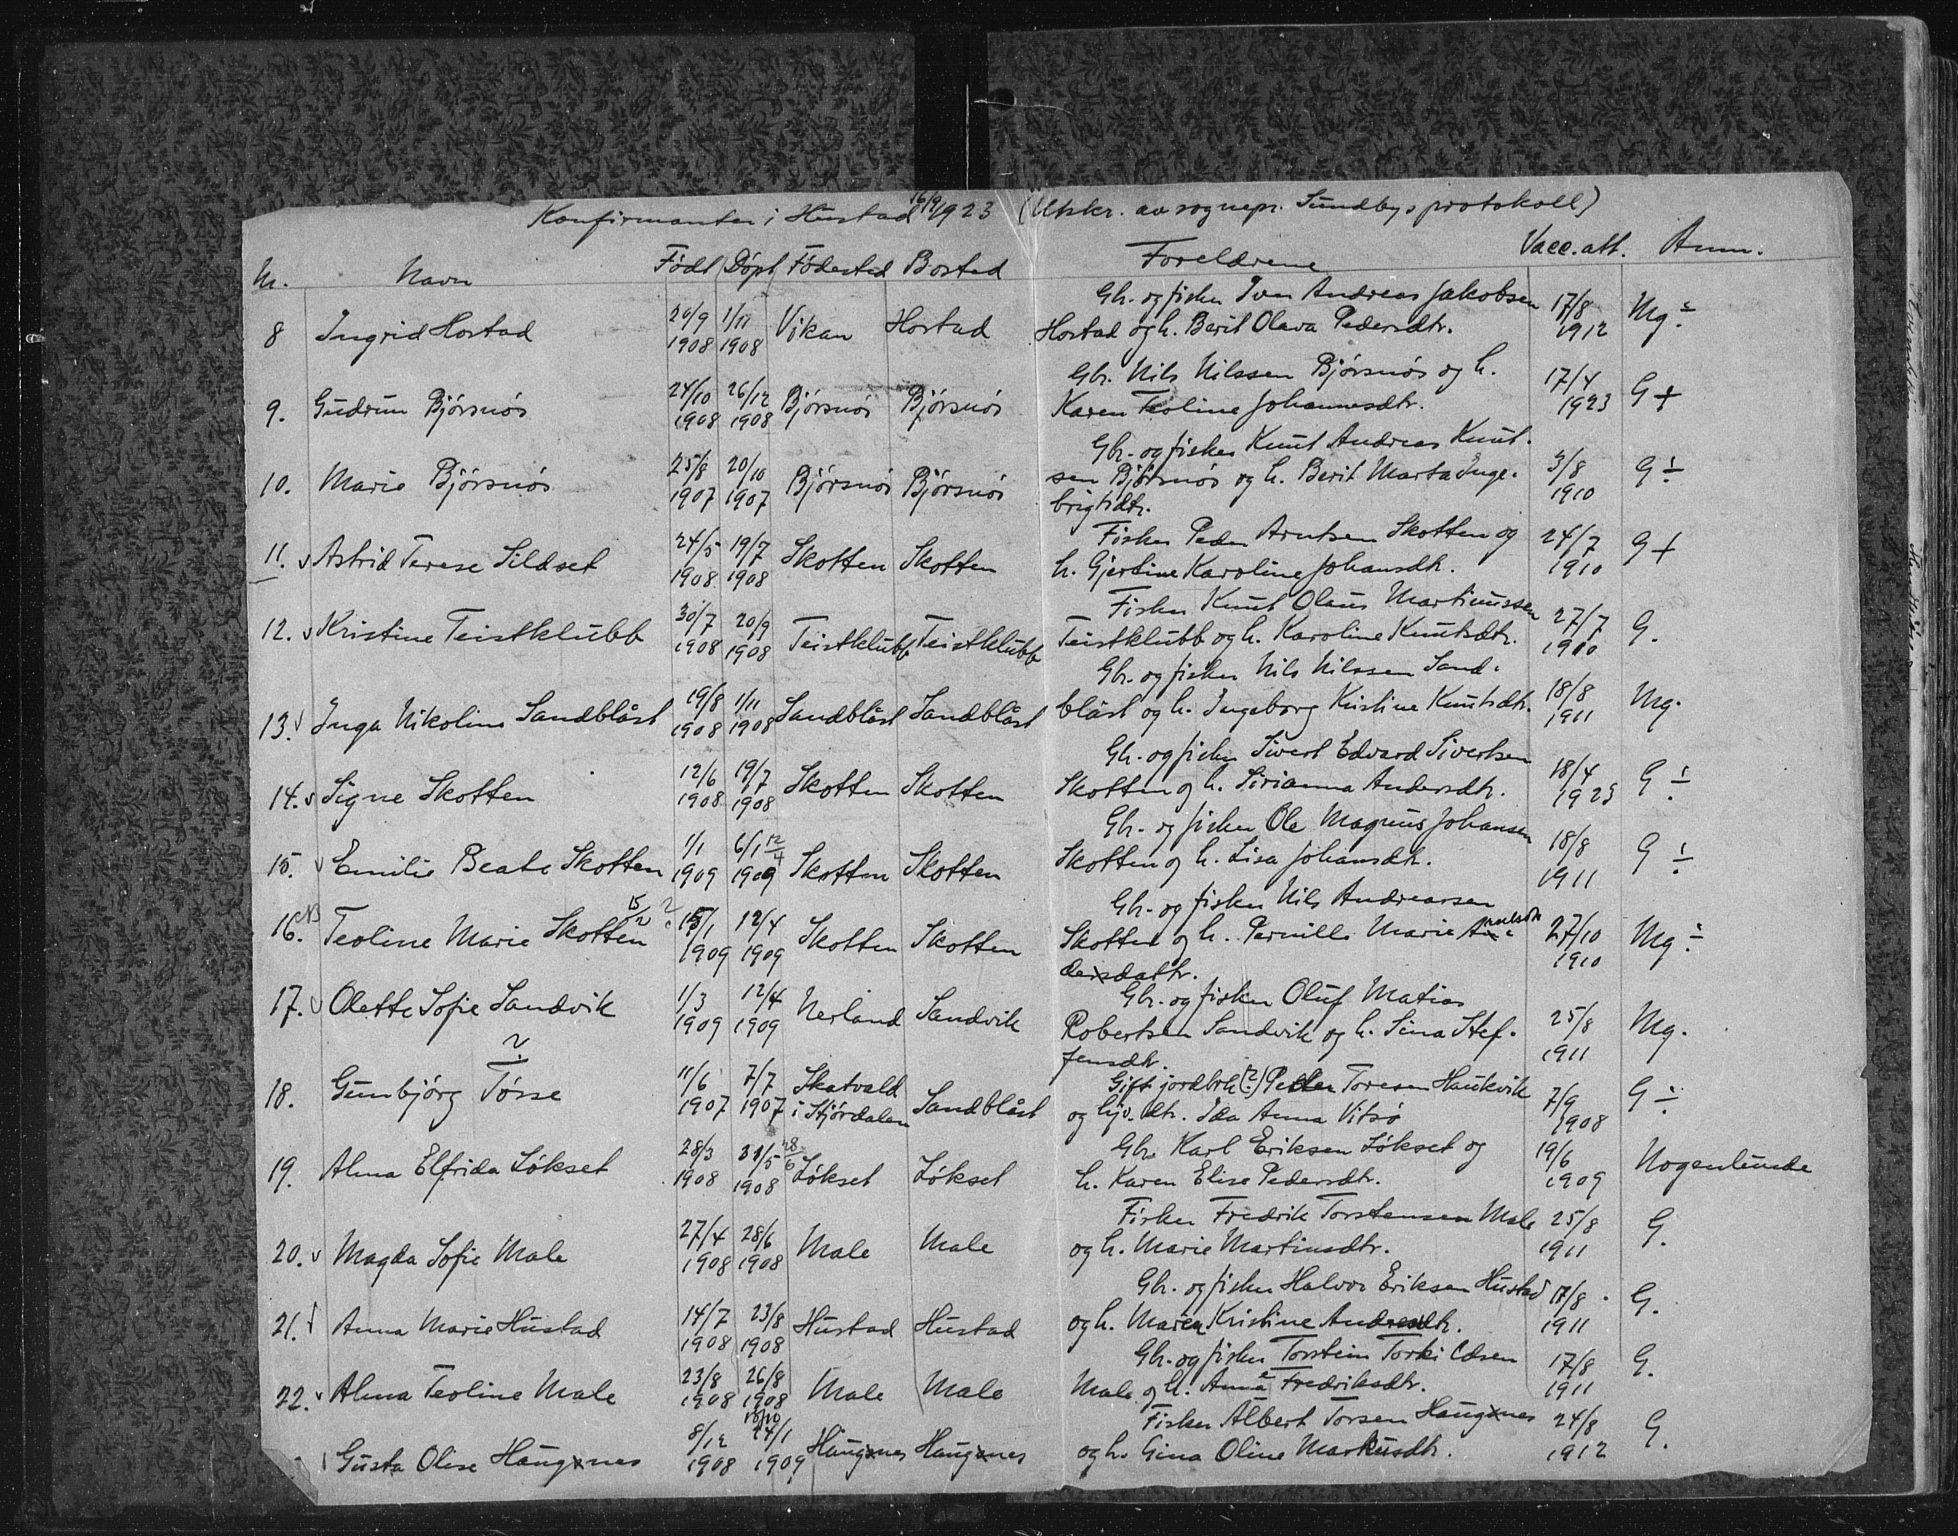 Konfirmanter i Hustad 16/9 1923 (Utskr. av sognepr. Sundbys protokoll)
Nr. Navn Født Døpt Fødested Bosted Forældrene Vacc.att. Anm.
8 Ingrid Hostad 20/9 1908 1/11 1908 Vikan Hostad Gbr. og fisker Iver Andreas Jakobsen
Hostad og h. Berit Olava Pedersdtr. 17/8 1912 Mg ÷
9. Gudrun Bjørsnøs 24/10 1908 26/12 1908 Bjørsnøs Bjørsnøs Gbr. Nils Nilssen Bjørsnøs og h.
Karen Teoline Johannesdtr. 17/4 1923 G +
10. Marie Bjørsnøs 25/8 1907 20/10 1907 Bjørsnøs Bjørsnøs Gbr. og fisker Knut Andreas Knut-
sen Bjørsnøs og h. Berit Marta Inge-
brigtsdtr. 3/8 1910 G ÷
11. v Astrid Terese Sildset 24/5 1908 19/7 1908 Skotten Skotten Fisker Peder Arntsen Skotten og
h. Gjertine Karoline Johansdtr. 24/7 1910 G +
12. v Kristine Teistklubb 30/7 1908 20/9 1908 Teistklubb Teistklubb Fisker Knut Olaus Martinussen
Teistklubb og h. Karoline Knutsdtr. 27/7 1910 G.
13. v Inga Nikoline Sandblåst 19/8 1908 1/11 1908 Sandblåst Sandblåst Gbr. og fisker Nils Nilssen Sand-
blåst og h. Ingeborg Kristine Knutsdtr. 18/8 1911 Mg.
14. v Signe Skotten 12/6 1908 19/7 1908 Skotten Skotten Gbr. og fisker Sivert Edvard Sivertsen
Skotten og h. Sirianna Andersdtr. 18/4 1923 G ÷
15. v Emilie Beate Skotten 1/1 1909 6/1 12/4 1909 Skotten Skotten Gbr. og fisker Ole Magnus Johansen
Skotten og h. Lisa Johansdtr. 18/8 1911 G ÷
16. NB Teoline Marie Skotten 15/2 ? 15/1 1909 12/4 1909 Skotten Skotten Gbr. og fisker Nils Andreassen
Skotten og h. Pernille Marie An-
dersdattr. 27/10 1910 Mg ÷
17. v Olette Sofie Sandvik 1/3 1909 12/4 1909 Nerland Sandvik Gbr. og fisker Oluf Matias
Robertsen Sandvik og h. Sina Stef-
fensdtr. 25/8 1911 Mg.
18. Gunbjørg Tørse ? 11/6 1907 7/7 1907 Skatvald i Stjørdalen Sandblåst Gift jordbrk (?) Peder Toresen Haukvik
og Gjv. dtr. Ida Anna Vitsø 7/9 1908 G ÷
19. Alma Elfrida Løkset 28/3 1908 31/5 28/6 1908 Løkset Løkset Gbr. Karl Eriksen Løkset og
h. Karen Elise Pedersdtr. 19/6 1909 Nogenlunde
20. v Magda Sofie Male 27/4 1908 28/6 1908 Male Male Fisker Fredrik Torstensen Male
og h. Marie Martinsdtr. 25/8 1911 G.
21. Anna Marie Hustad 14/7 1908 23/8 1908 Hustad Hustad Gbr. og fisker Halvor Eriksen Hustad
og h. Maren Kristine Andreasdtr. 17/8 1911 G.
22. v Alma Teoline Male 23/8 1908 26/8 1908 Male Male Gbr. og fisker Torstein Torkildsen
Male og h. Anna Fredriksdtr. 17/8 1911 G.
Gusta Oline Haugnes 8/12 1908 24/1 1909 Haugnes Haugnes Fisker Albert Torsen Haugnes
og h. Gina Oline Markusdtr. 24/8 1912 G.